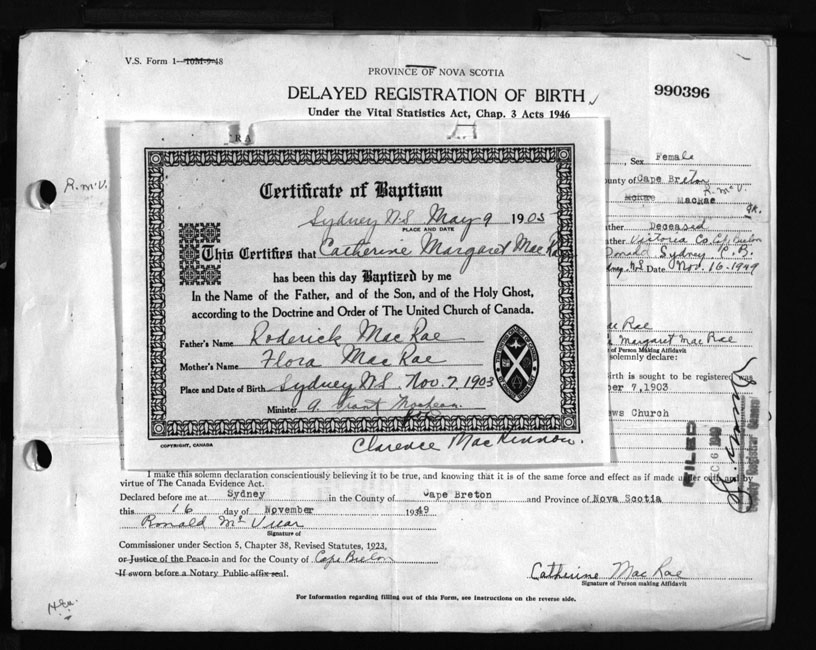 V.S. Form 1—10M-9-48
PROVINCE OF NOVA SCOTIA
DELAYED REGISTRATION OF BIRTH
990396
Under the Vital Statistics Act, Chap. 3 Acts 1946
R A
, Sex Female
R. McV.
unty of Cape Breton
R. McV.
McRae MacRae
Certificate of Baptism
Sydney NS May 9 1905
PLACE AND DATE
This Certifies that Catherine Margaret Mac Ra
has been this day Baptized by me
In the Name of the Father, and of the Son, and of the Holy Ghost,
according to the Doctrine and Order of The United Church of Canada.
Father's Name Roderick Mac Rae
Mother's Name Flora Mac Rae
Place and Date of Birth Sydney NS. Nov. 7, 1903
Minister A. Grant
Clarence MacKinnon.
COPYRIGHT, CANADA
ather Deceased
ather Victoria Co. Cape Breton
Donald Sydney C. B.
dney. N.S. Date Nov. 16. 1949
ac Rae
Margaret Mac Rae
of Person Making Affidavit
solemnly declare:
irth is sought to be registered was
ber 7,1903
ews Church
FILED
I make this solemn declaration conscientiously believing it to be true, and knowing that it is of the same force and effect as if made under oath and by
virtue of The Canada Evidence Act.
Declared before me at Sydney in the County of Cape Breton and Province of Nova Scotia
this 16 day of November 1949
Ronald McVicar
Signature of
Commissioner under Section 5, Chapter 38, Revised Statutes, 1923,
or Justice of the Peace in and for the County of Cape Breton
If sworn before a Notary Public affix seal.
Catherine Mac Rae
Signature of Person making Affidavit
For Information regarding filling out of this Form, see Instructions on the reverse side.